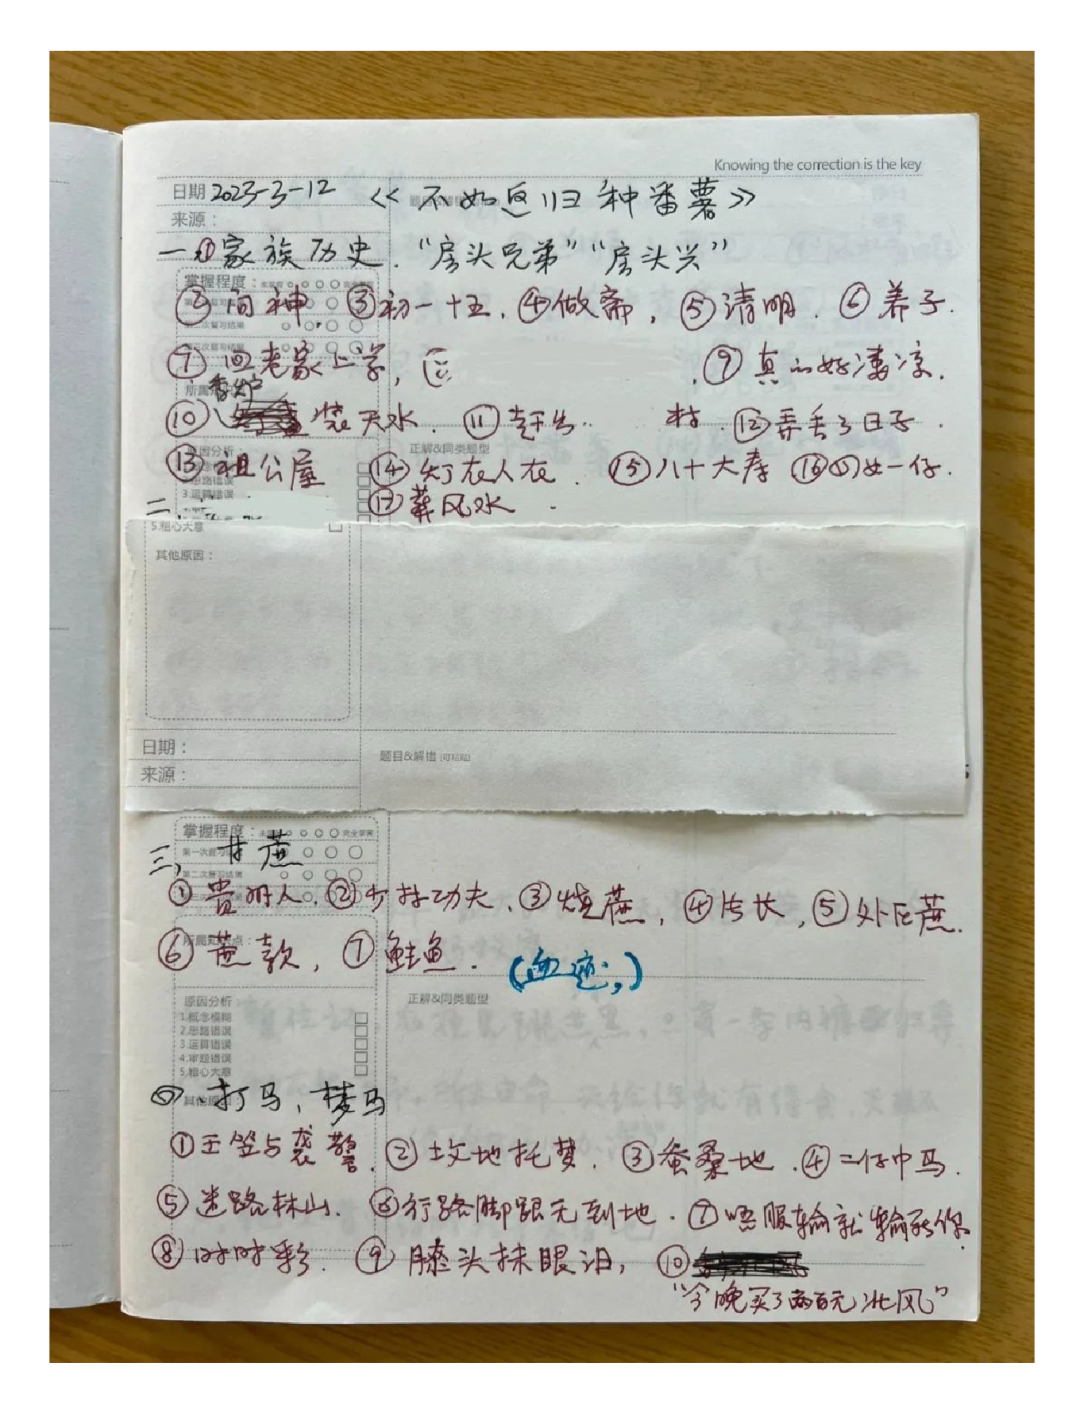 Knowing the correction is the key
日期 2023-3-12 《不如返归种番薯》
来源：
一、①家族历史．“房头兄弟”“房头兴”
掌握程度：
②问神 ③初一十五．④做斋，⑤清明．⑥养子．
⑦回老家上学， ．⑨真的好凄凉．
香炉
⑩ 装天水．⑪ 村．⑫弄丢了日子．
原因分析 正解&同类题型
⑬祖公屋 ⑭ ．⑮八十大寿 ⑯四女一仔．
3.运算错误
二、 ⑰葬风水．
5.粗心大意
其他原因：
日期：
来源： 题目&解错
掌握程度： 完全掌握
三、甘蔗
①贵州人．②少林功夫．③烧蔗，④片长，⑤外圧蔗．
⑥蔗款，⑦鲑鱼．
原因分析 正解&同类题型
1.概念模糊
2.思路错误
3.运算错误
4.审题错误
5.粗心大意
四 打马、梦马
其他原因：
①王笠与袭警．②坟地托梦．③蚕桑地．④二仔中马．
⑤迷路林山．⑥行路脚跟无到地．⑦唔服输就输死你．
⑧时时彩．⑨膝头抹眼泪，⑩
“今晚买了两百元北风”